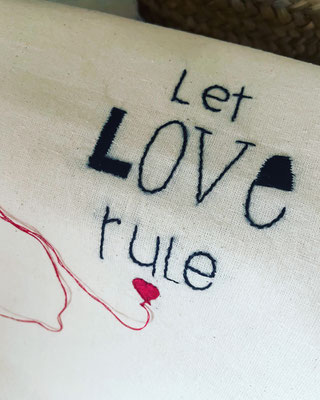 Let
LOVe
rule